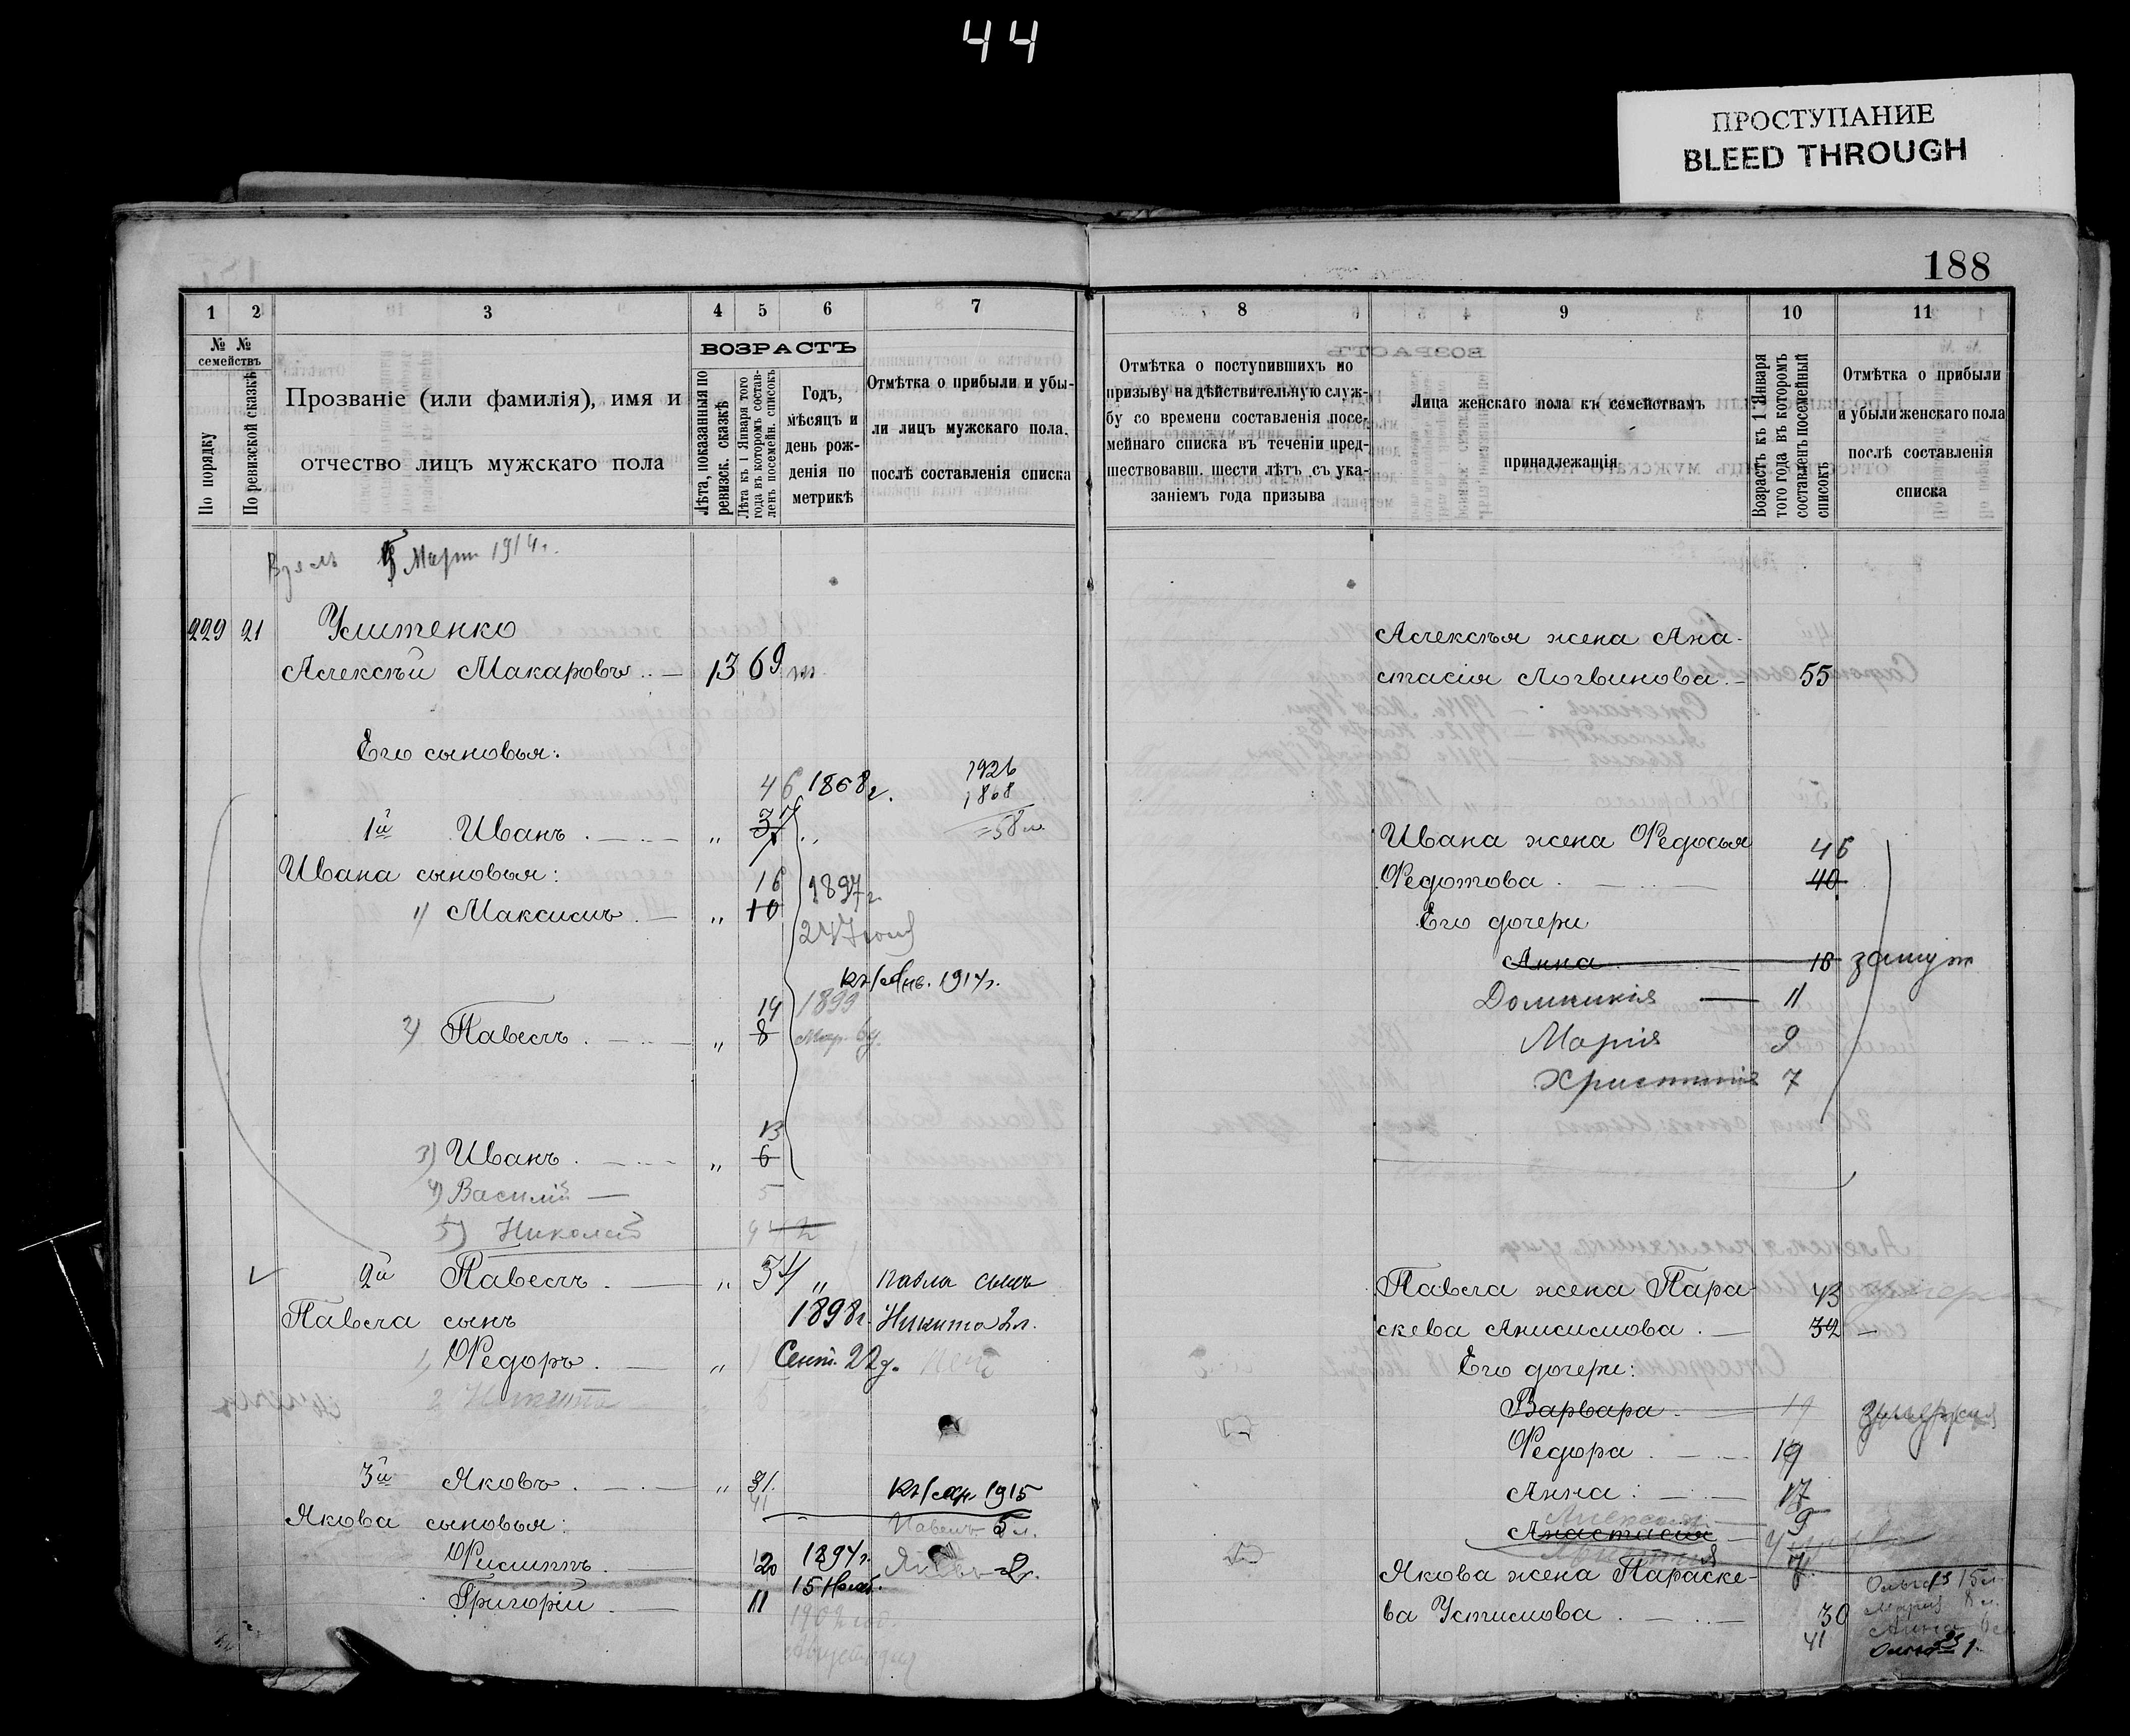 44
ПРОСТУПАНИЕ
BLEED THROUGH
188
1 2 3 4 5 6 7
№ №
семействъ
По порядку
По ревизской сказкѣ
Прозваніе (или фамилія), имя и
отчество лицъ мужскаго пола
ВОЗРАСТЪ
Лѣта, показанныя по
ревизск. сказкѣ
Лѣта къ 1 Января того
года въ которомъ состав-
ленъ посемейн. списокъ
Годъ,
мѣсяцъ и
день рож-
денія по
метрикѣ
Отмѣтка о прибыли и убы-
ли лицъ мужскаго пола,
послѣ составленія списка
Взялъ 5 Марта 1914 г.
229 21 Усотенко
Алексѣй Макаровъ 13 69
Его сыновья:
46 1868 г. 1926
1868
1й Иванъ „ 37 58
Ивана сыновья: 16 1897 г.
1) Максимъ „ 10 24 Іюля
къ 1 Янв. 1914 г.
14 1899
2) Павелъ „ 8 Мар. 6 д.
13
3) Иванъ „ 6
4) Василій — 5
5) Николай
2й Павелъ „ 34 „ Павла сынъ
Павла сынъ 1898 г. Никита 2 л.
1) Ѳедоръ „ Сент. 22 д.
2 Никита
3й Яковъ „ 31. къ 1 Янр. 1915
41
Якова сыновья: Павелъ 5 л.
Филиппъ 20 1894 г.
15 Нояб.
Григорій 11 1902
8 9 10 11
Отмѣтка о поступившихъ по
призыву на дѣйствительную служ-
бу со времени составленія посе-
мейнаго списка въ теченіи пред-
шествовавш. шести лѣтъ съ ука-
заніемъ года призыва
Лица женскаго пола къ семействамъ
принадлежащія
Возрастъ къ 1 Января
того года въ которомъ
составленъ посемейный
списокъ
Отмѣтка о прибыли
и убыли женскаго пола
послѣ составленія
списка
Алексѣя жена Ана-
стасія Логвинова 55
Ивана жена Ѳедосья 46
Ѳедотова 40
Его дочери
Анна 18 замуж
Домникія 11
Марія 9
Христинія 7
Павла жена Пара- 43
скева Анисимова 32
Его дочери:
Варвара 19 замужня
Ѳедора 19
Анна 17
Анастасія
Якова жена Параске-
ва Устимова 30
41
Ольга 15 л.
Марія 8 л.
Анна